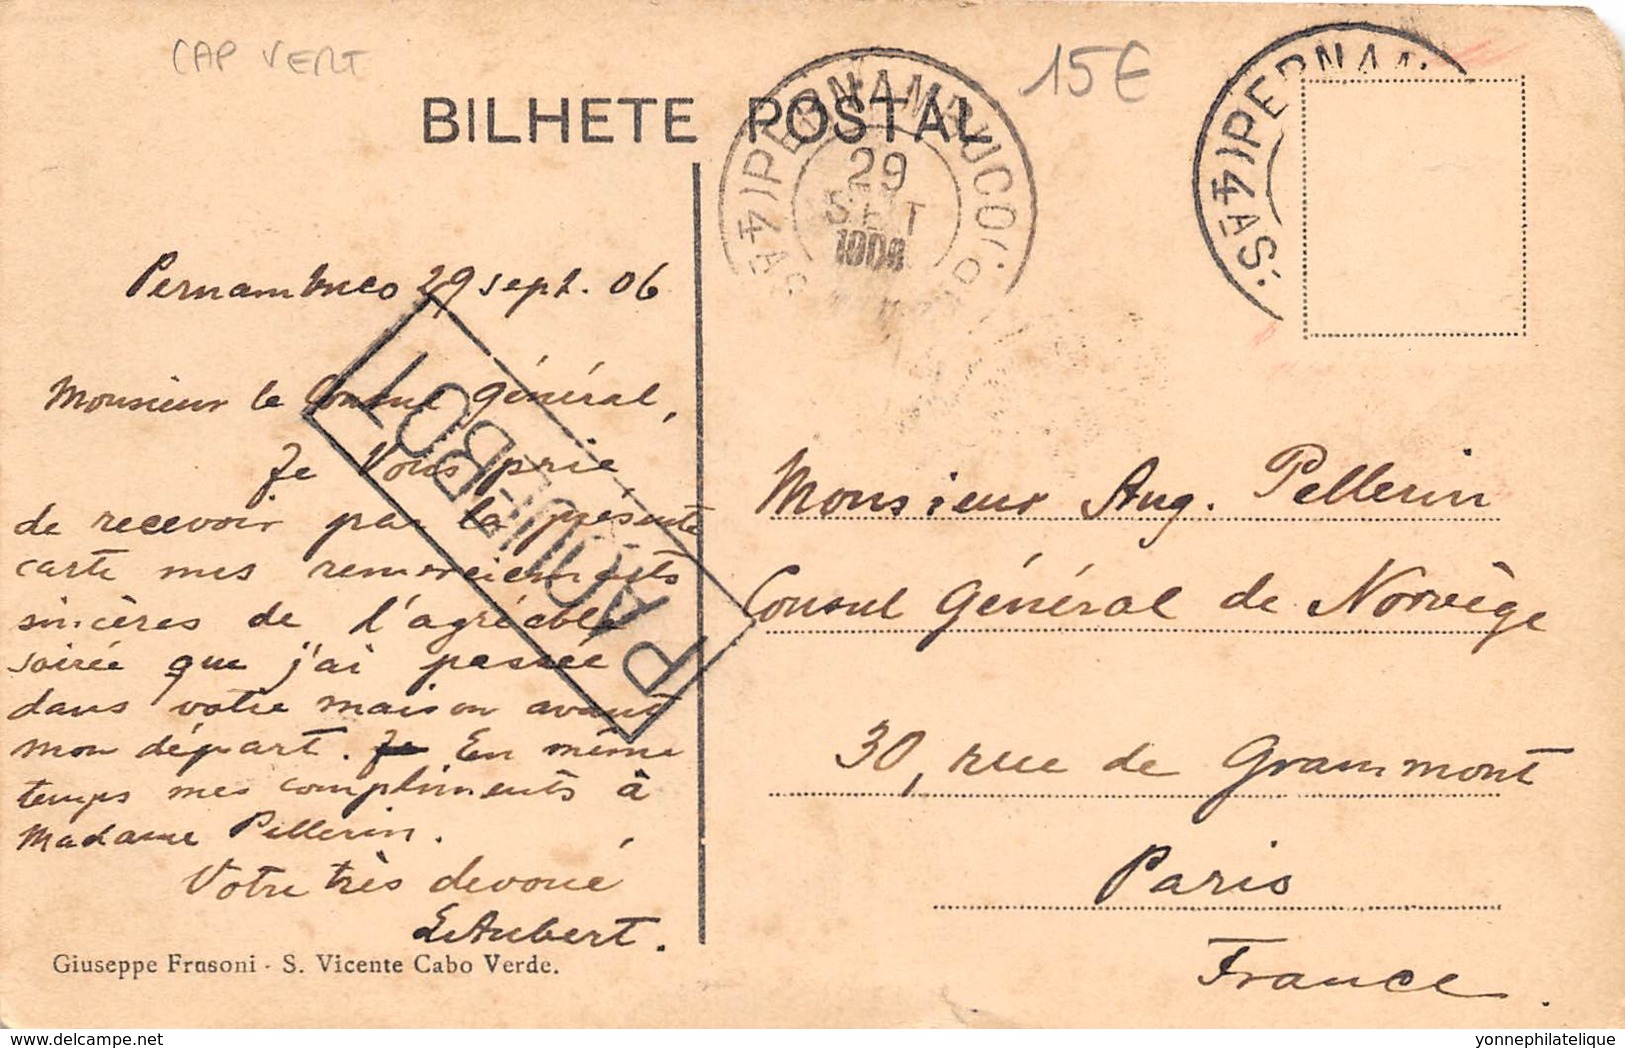 CAP VERT
15€
BILHETE POSTAL
PERNAMBUCO
29
SET
1906
(4ª
PERNAM
(4ª
Pernambuco 29 sept. 06
Monsieur le Consul Général,
Je Vous prie
de recevoir par la présente
carte mes remerciements
sincères de l'agréable
soirée que j'ai passée
dans votre maison avant
mon départ. Je En même
temps mes compliments à
Madame Pellerin.
Votre très dévoué
E. Aubert.
PAQUEBOT
Monsieur Aug. Pellerin
Consul Général de Norvège
30, rue de Grammont
Paris
France.
Giuseppe Frusoni - S. Vicente Cabo Verde.
yonnephilatelique
©delcampe.net